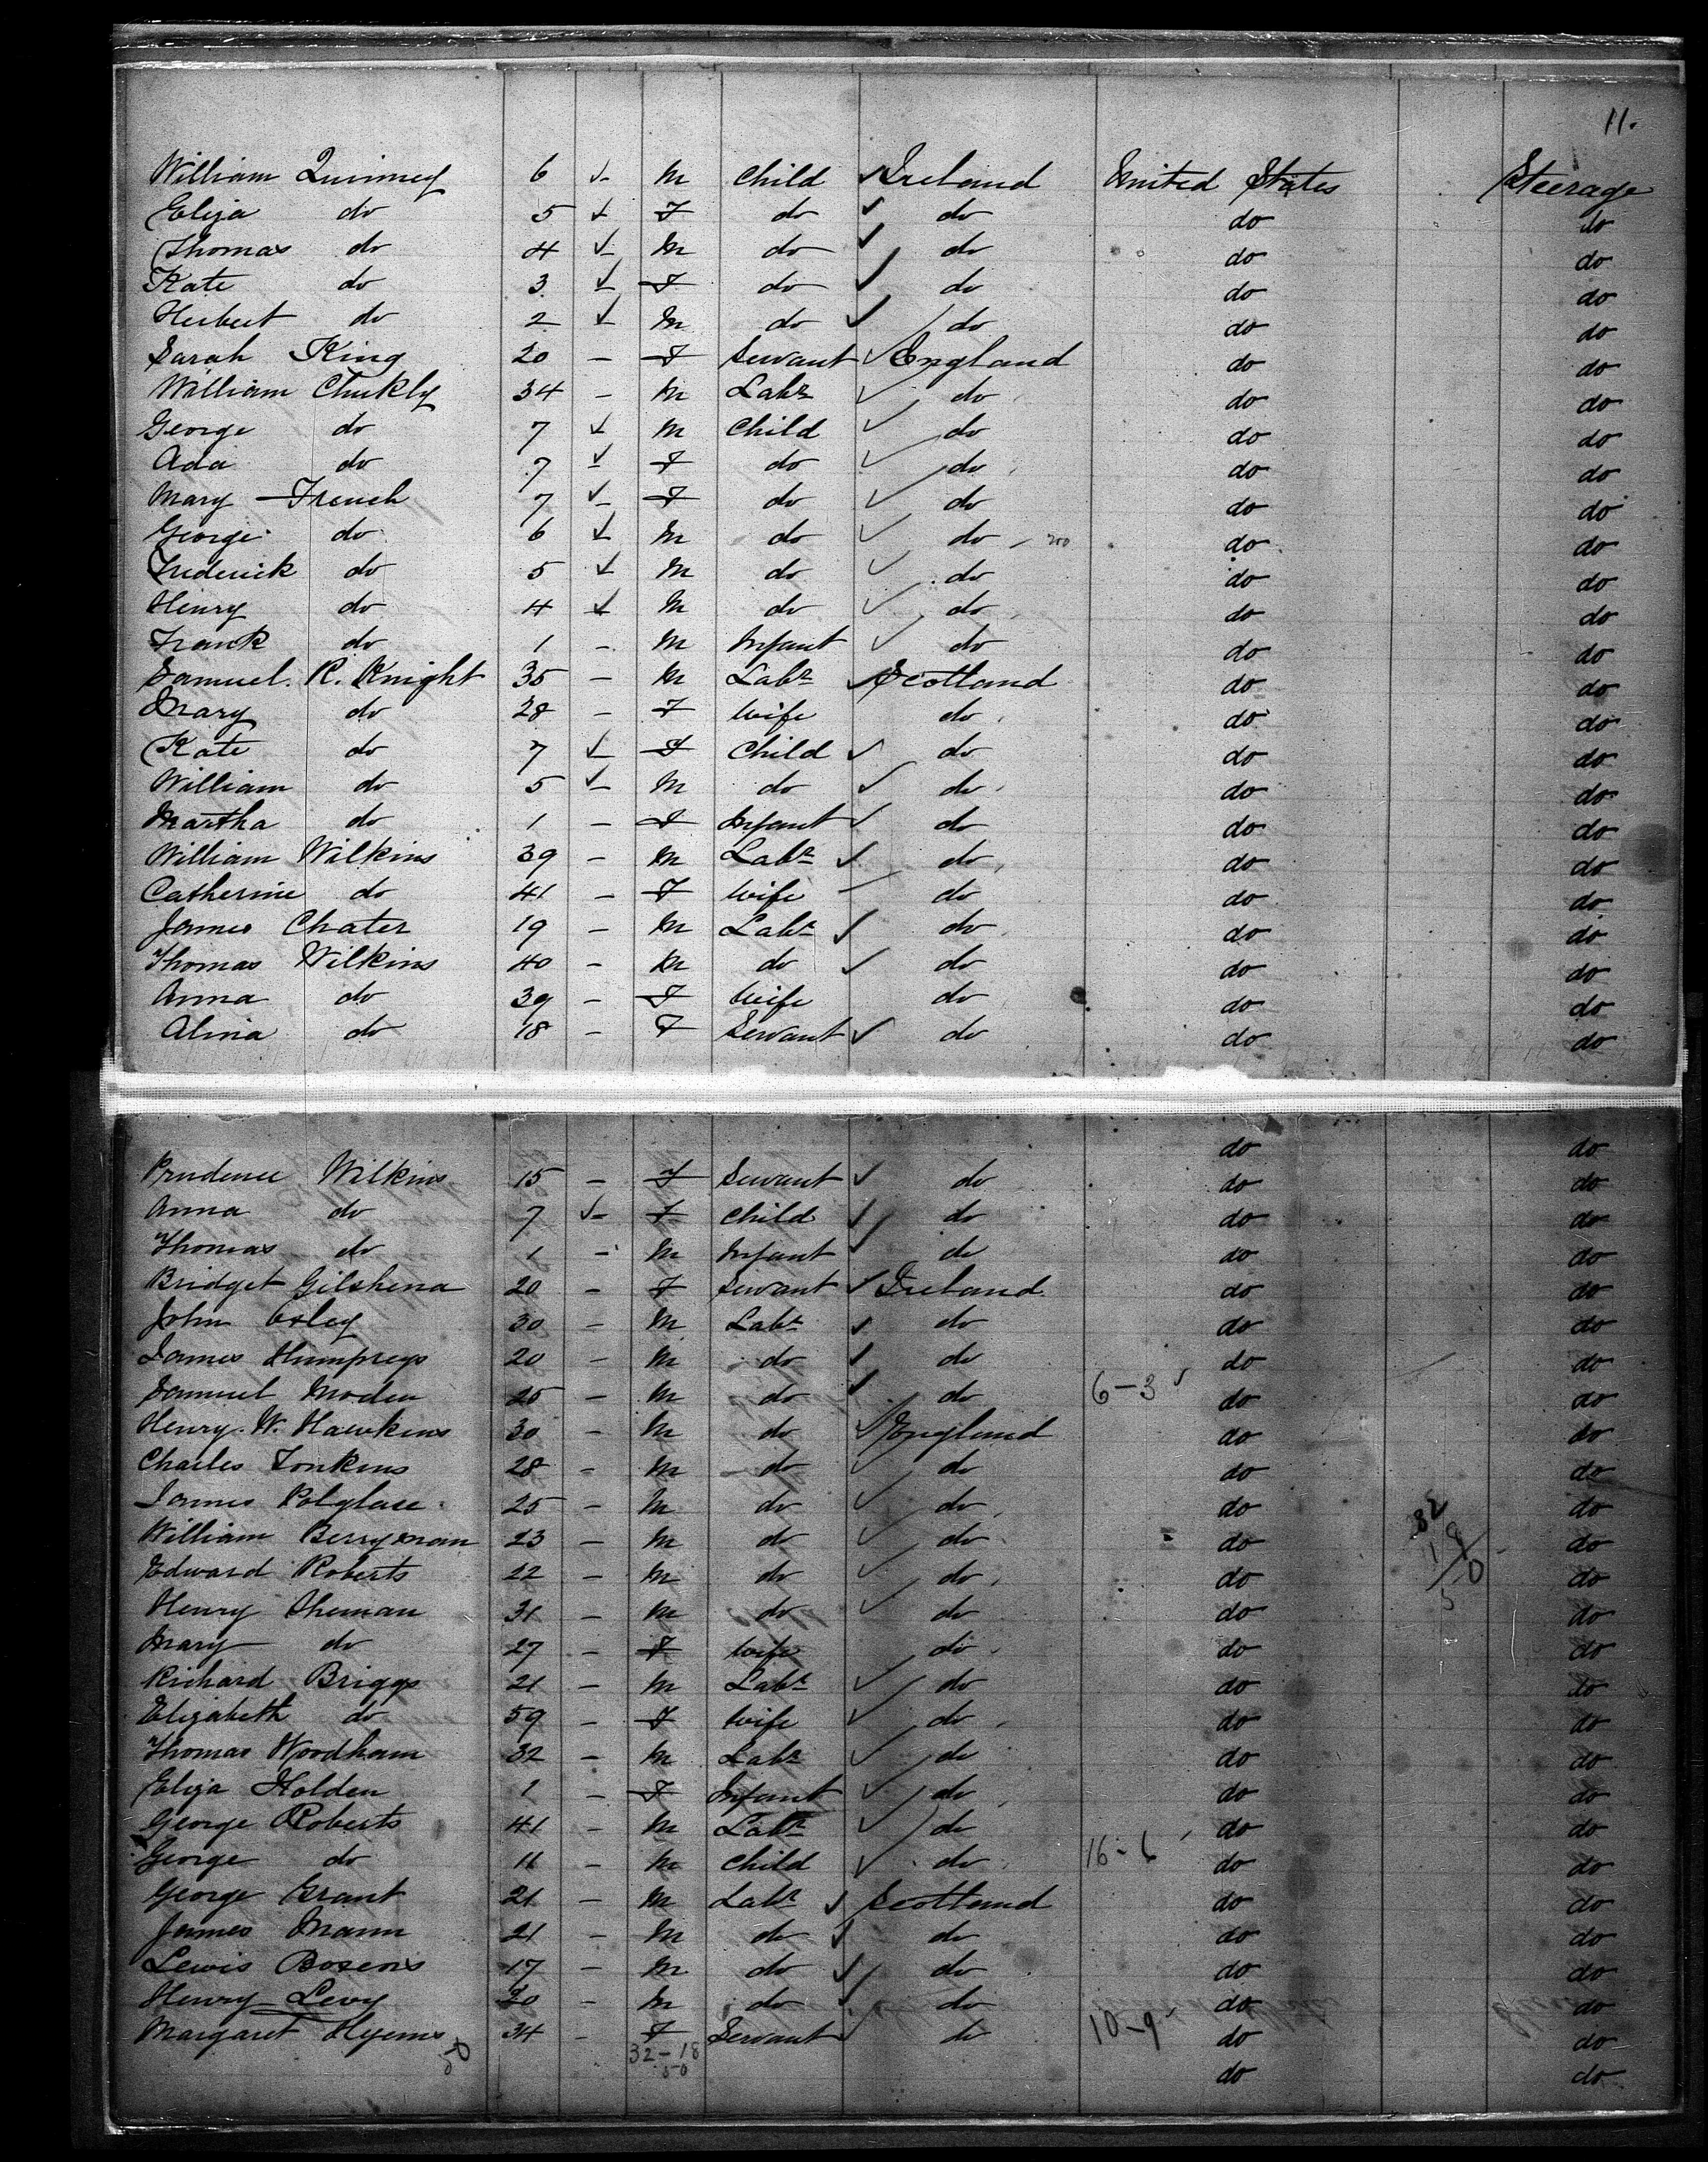 11.
William Quinney 6 ✓ - M Child ✓ Ireland United States Steerage
Eliza do 5 ✓ - F do ✓ do do do
Thomas do 4 ✓ - M do ✓ do do do
Kate do 3 ✓ - F do ✓ do do do
Herbert do 2 ✓ - M do ✓ do do do
Sarah King 20 - F Servant ✓ England do do
William Chukly 34 - M Labr ✓ do do do
George do 7 ✓ - M Child ✓ do do do
Ada do 7 ✓ - F do ✓ do do do
Mary French 7 ✓ - F do ✓ do do do
George do 6 ✓ - M do ✓ do do do
Frederick do 5 ✓ - M do ✓ do do do
Henry do 4 ✓ - M do ✓ do do do
Frank do 1 - M Infant ✓ do do do
Samuel. R. Knight 35 - M Labr ✓ Scotland do do
Mary do 28 - F Wife do do do
Kate do 7 ✓ - F Child ✓ do do do
William do 5 ✓ - M do ✓ do do do
Martha do 1 - F Infant ✓ do do do
William Wilkins 39 - M Labr ✓ do do do
Catherine do 41 - F Wife do do do
James Chater 19 - M Labr ✓ do do do
Thomas Wilkins 40 - M do ✓ do do do
Anna do 39 - F Wife do do do
Alina do 18 - F Servant ✓ do do do
do do
Prudence Wilkins 15 - F Servant ✓ do do do
Anna do 7 ✓ - F Child ✓ do do do
Thomas do 1 - M Infant ✓ do do do
Bridget Gilshena 20 - F Servant ✓ Ireland do do
John Oxley 30 - M Labr ✓ do do do
James Humpreys 20 - M do ✓ do do do
Samuel Moden 25 - M do ✓ do 6-3 do do
Henry. W. Hawkins 30 - M do ✓ England do do
Charles Tonkins 28 - M do ✓ do do do
James Polglase 25 - M do ✓ do do 32 do
William Berryman 23 - M do ✓ do do 18 do
Edward Roberts 22 - M do ✓ do do do
Henry Sheman 31 - M do ✓ do do do
Mary do 27 - F Wife do do do
Richard Briggs 21 - M Labr ✓ do do do
Elizabeth do 59 - F Wife ✓ do do do
Thomas Woodham 32 - M Labr ✓ do do do
Eliza Holden 1 - F Infant ✓ do do do
George Roberts 41 - M Labr ✓ do do do
George do 11 - M Child ✓ do 16-6 do do
George Grant 21 - M Labr ✓ Scotland do do
James Mann 21 - M do ✓ do do do
Lewis Bosens 17 - M do ✓ do do do
Henry Levy 20 - M do ✓ do do do
Margaret Hyems 34 - F Servant ✓ do 10-9 do do
50 32-18 do do
50